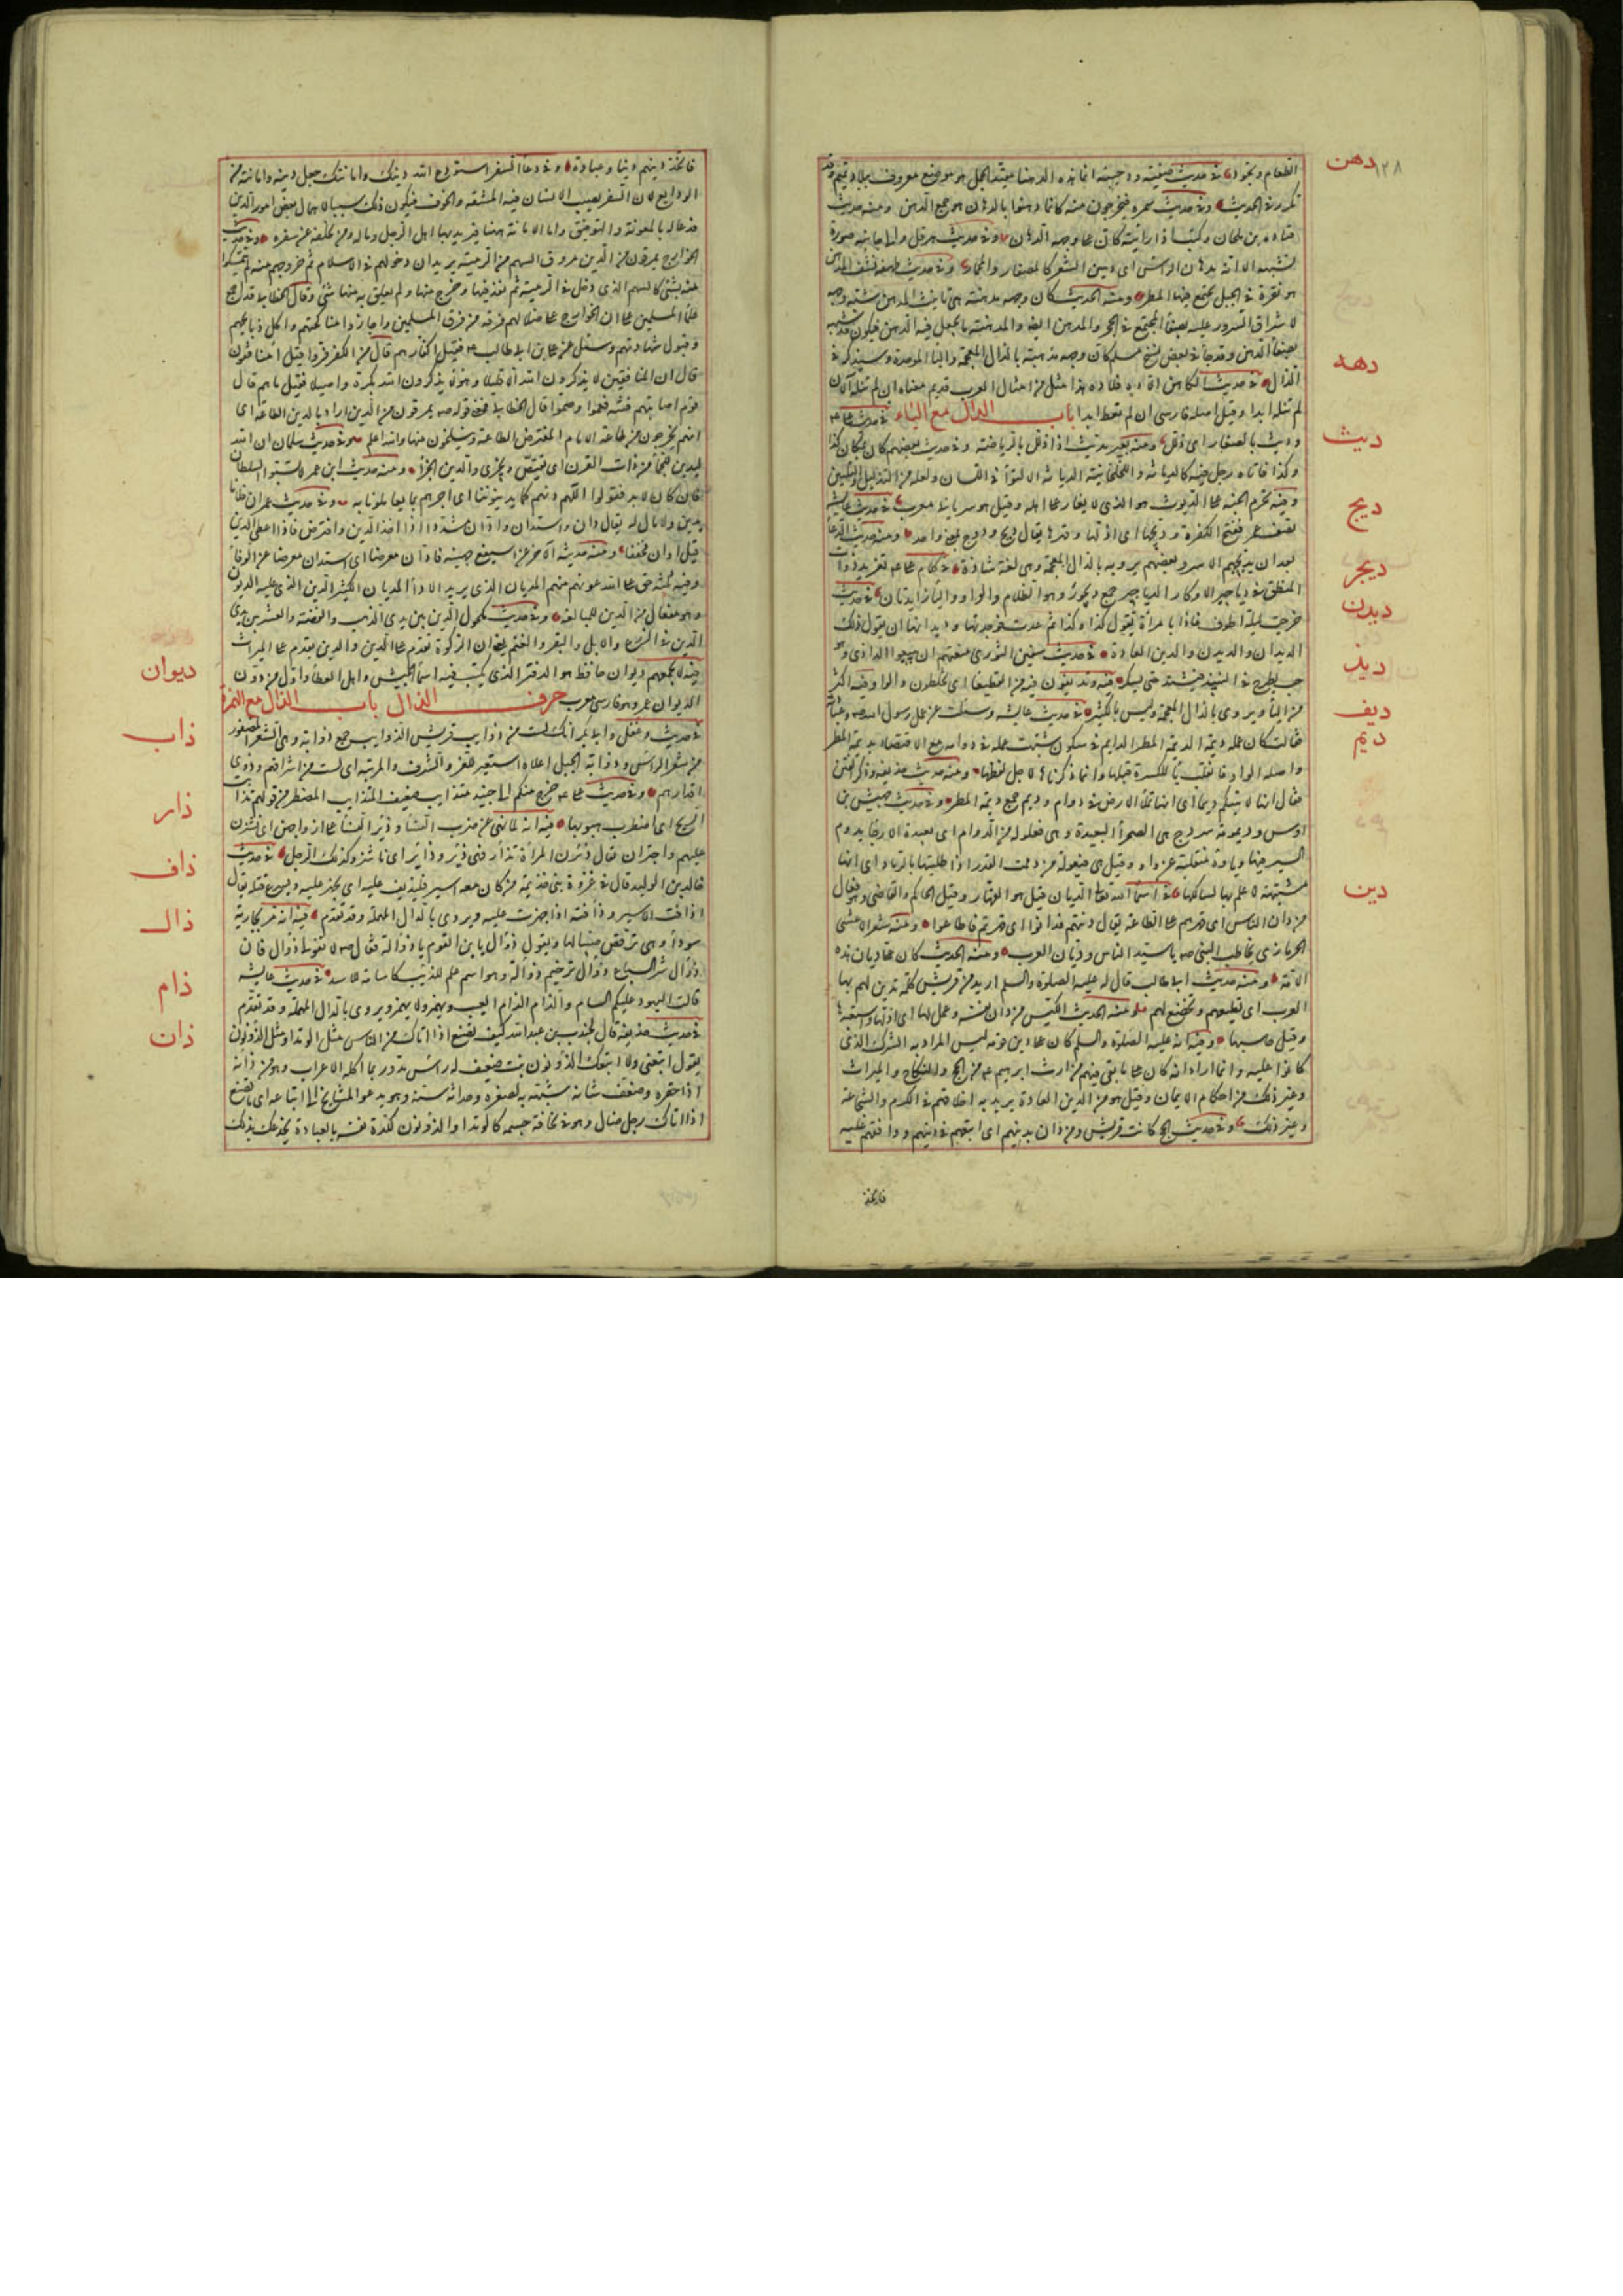 دهن
١٢٨
الطعام ونحوه في حديث صفية ودحيبة انما هذه الدهنا مقيد الجمل هو موضع معروف ببلاد تميم وقد
تكرر في الحديث وفي حديث سمرة فيخرجون منه كانما دهنوا بالدهان هو جمع الدهن ومنه حديث
قتادة بن ملحان وكنت اذا رايته كان على وجهه الدهان وفي حديث هرقل والى جانبه صورة
تشبهه الا انه مدهان الراس اي دهين الشعر كالمصفار والمحمار وفي حديث طهفة نشف المدهن
هو نقرة في الجبل يجتمع فيها المطر ومنه الحديث كان وجهه مدهنة هي تانيث المدهن شبه وجهه
لاشراق السرور عليه بصفاء الماء المجتمع في الحجر والمدهن ايضا والمدهنة ما يجعل فيه الدهن فيكون قد شبهه
بصفاء الدهن وقد جاء في بعض نسخ مسلم كان وجهه مذهبة بالذال المعجمة والباء الموحدة وسيذكر في
دهده
الذال في حديث الكاهن الا ده فلا ده هذا مثل من امثال العرب قديم معناه ان لم تنله الان
لم تنله ابدا وقيل اصله فارسي اي ان لم تعط ابدا باب الدال مع الياء في حديث علي
ديث
وديث بالصغار اي ذلل ومنه بعير مديث اذا ذلل بالرياضة وفي حديث بعضهم كان بمكان كذا
وكذا فاتاه رجل فيه كالدياثة واللخلخانية الدياثة الالتواء في اللسان ولعله من التذليل والتليين
ديج
وفيه تحرم الجنة على الديوث هو الذي لا يغار على اهله وقيل هو سرياني معرب في حديث عايشة
ديجر
في كلام علي تغريد ذوات
المنطق في دياجير الاوكار الدياجير جمع ديجور وهو الظلام والواو والياء زايدتان في حديث
ديدن
خرجت ليلة اطوف فاذا بامراة تقول كذا وكذا ثم عدت فوجدتها وديدانها ان تقول ذلك
الديدان والديدن والدين العادة في حديث سفين الثوري منعتهم ان يبيعوا الداذي هو
ديذ
حب يطرح في النبيذ فيشتد حتى يسكر فيه وتديفون فيه من القطيعاء اي تخلطون والواو فيه اكثر
ديف
من الياء ويروى بالذال المعجمة وليس بالكثير في حديث عايشة وسئلت عن عمل رسول الله وعبادته
ديم
فقالت كان عمله ديمة الديمة المطر الدايم في سكون شبهت عمله في دوامه مع الاقتصاد بديمة المطر
واصله الواو فانقلبت ياء للكسرة قبلها وانما ذكرناها لاجل لفظها ومنه حديث حذيفة وذكر الفتن
فقال انها لاتيتكم ديما اي انها تملأ الارض في دوام وديم جمع ديمة المطر وفي حديث جهيش بن
اوس وديمومة سردح هي الصحراء البعيدة وهي فعلولة من الدوام اي بعيدة الارجاء يدوم
السير فيها وياؤه منقلبة عن واو وقيل هي فيعولة من دممت القدر اذا طليتها بالرماد اي انها
دين
مشتبهة لا علم بها لسالكها في اسماء الله تعالى الديان قيل هو القهار وقيل الحاكم والقاضي وهو فعال
من دان الناس اي قهرهم على الطاعة يقال دنتهم فدانوا اي قهرتهم فاطاعوا ومنه شعر الاعشى
الحرمازي يخاطب النبي يا سيد الناس وديان العرب ومنه الحديث كان علي ديان هذه
الامة ومنه حديث ابي طالب قال له عليه الصلوة والسلام اريد من قريش كلمة تدين لهم بها
العرب اي تطيعهم وتخضع لهم ومنه الحديث الكيس من دان نفسه وعمل لها اي اذلها واستعبدها
وقيل حاسبها وفيه انه عليه الصلوة والسلام كان على دين قومه ليس المراد به الشرك الذي
كانوا عليه وانما اراد انه كان على ما بقي فيهم من ارث ابراهيم من الحج والنكاح والميراث
وغير ذلك من احكام الايمان وقيل هو من الدين العادة يريد به اخلاقهم في الكرم والشجاعة
وغير ذلك وفي حديث الحج كانت قريش ومن دان بدينهم اي اتبعهم في دينهم ووافقهم عليه
فاتخذ
فاتخذ دينهم دينا وعبادة وفي دعاء السفر استودع الله دينك وامانتك جعل دينه وامانته من
الودايع لان السفر يصيب الانسان فيه المشقة والخوف فيكون ذلك سببا لاهمال بعض امور الدين
فدعا له بالمعونة والتوفيق واما الامانة ههنا فيريد بها اهل الرجل وماله ومن يخلفه عن سفره وفي حديث
الخوارج يمرقون من الدين مروق السهم من الرمية يريد ان دخولهم في الاسلام ثم خروجهم منه لم يتمسكوا
منه بشيء كالسهم الذي دخل في الرمية ثم نفذ فيها وخرج منها ولم يعلق به منها شيء وقال الخطابي قد اجمع
علماء المسلمين على ان الخوارج على ضلالتهم فرقة من فرق المسلمين واجازوا مناكحتهم واكل ذبايحهم
وقبول شهادتهم وسئل عنهم علي بن ابي طالب فقيل اكفار هم قال من الكفر فروا قيل افمنافقون
قال ان المنافقين لا يذكرون الله الا قليلا وهؤلاء يذكرون الله بكرة واصيلا فقيل ما هم قال
قوم اصابتهم فتنة فعموا وصموا قال الخطابي فمعنى قوله يمرقون من الدين اراد بالدين الطاعة اي
انهم يخرجون من طاعة الامام المفترض الطاعة وينسلخون منها والله اعلم وفي حديث سلمان ان الله
ليدين للجماء من ذات القرن اي يقتص ويجزي والدين الجزاء ومنه حديث ابن عمر لا تسبوا السلطان
فان كان لا بد فقولوا اللهم دنهم كما يدينوننا اي اجزهم بما يعاملونا به وفي حديث عمر ان فلانا
يدين ولا مال له يقال دان واستدان وادان مشددا اذا اخذ الدين واقترض فاذا اعطى الدين
قيل ادان مخففا ومنه حديثه الاخر عن اسيفع جهينة فادان معرضا اي استدان معرضا عن الوفاء
وفيه ثلثة حق على الله عونهم منهم المديان الذي يريد الاداء المديان الكثير الدين الذي عليه الديون
وهو مفعال من الدين للمبالغة وفي حديث مكحول الدين بين يدي الذهب والفضة والعشر بين يدي
الدين في الزرع والابل والبقر والغنم يعني ان الزكوة تقدم على الدين والدين يقدم على الميراث
ديوان
فيه لا يجمعهم ديوان حافظ هو الدفتر الذي يكتب فيه اسماء الجيش واهل العطاء واول من دون
الديوان عمر وهو فارسي معرب حرف الذال باب الذال مع الهمزة
ذاب
في حديث دغفل وابي بكر انك لست من ذوايب قريش الذوايب جمع ذوابة وهي الشعر المضفور
من شعر الراس وذوابة الجبل اعلاه استعير للعز والشرف والمرتبة اي لست من اشرافهم وذوي
اقدارهم وفي حديث علي خرج منكم الي جنيد متذايب ضعيف المتذايب المضطرب من قولهم تذابت
ذار
الريح اي اضطرب هبوبها فيه انه لما نهى عن ضرب النساء ذئر النساء على ازواجهن اي نشزن
عليهم واجتران يقال ذئرت المراة تذار فهي ذئر وذائر اي ناشز وكذلك الرجل في حديث
ذاف
خالد بن الوليد قال في غزوة بني جذيمة من كان معه اسير فليذيف عليه اي يجهز عليه ويسرع قتله يقال
اذافت الاسير وذافته اذا جهزت عليه ويروى بالدال المهملة وقد تقدم فيه انه مر بجارية
ذال
سوداء وهي ترقص صبيا لها وتقول ذوال يا بن القوم يا ذواله فقال لا تقولي ذوال فان
ذوال شر السباع ذوال ترخيم ذوالة وهو اسم علم للذيب كاسامة للاسد في حديث عايشة
ذام
قالت لليهود عليكم السام والذام الذام العيب ويهمز ولا يهمز ويروى بالدال المهملة وقد تقدم
ذان
في حديث حذيفة قال لجندب بن عبد الله كيف تصنع اذا اتاك من الناس مثل الوتد او مثل الذونون
يقول اتبعني ولا اتبعك الذونون نبت ضعيف له راس مدور ربما اكله الاعراب وهو من ذانه
اذا حقره وضعف شانه شبهه به لصغره وحداثة سنه وهو يدعو المشايخ الى اتباعه اي ما تصنع
اذا اتاك رجل ضال وهو في نحافة جسمه كالوتد او الذونون لكده نفسه بالعبادة يخدعك بذلك